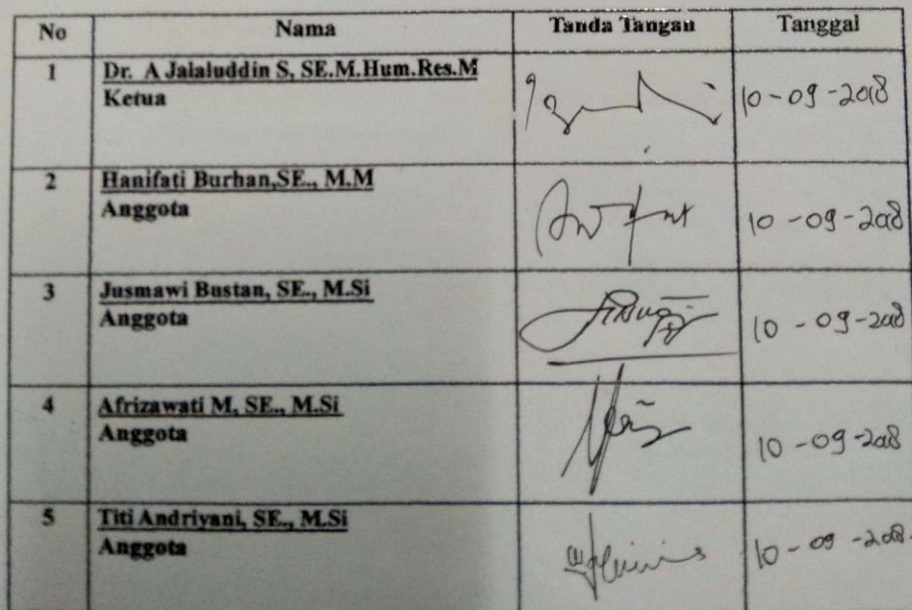 No Nama Tanda Tangan Tanggal
1 Dr. A Jalaluddin S, SE.M.Hum.Res.M
Ketua
10-09-2018
2 Hanifati Burhan,SE., M.M
Anggota
10-09-2018
3 Jusmawi Bustan, SE., M.Si
Anggota
10-09-2018
4 Afrizawati M, SE., M.Si
Anggota
10-09-2018
5 Titi Andriyani, SE., M.Si
Anggota
10-09-2018.